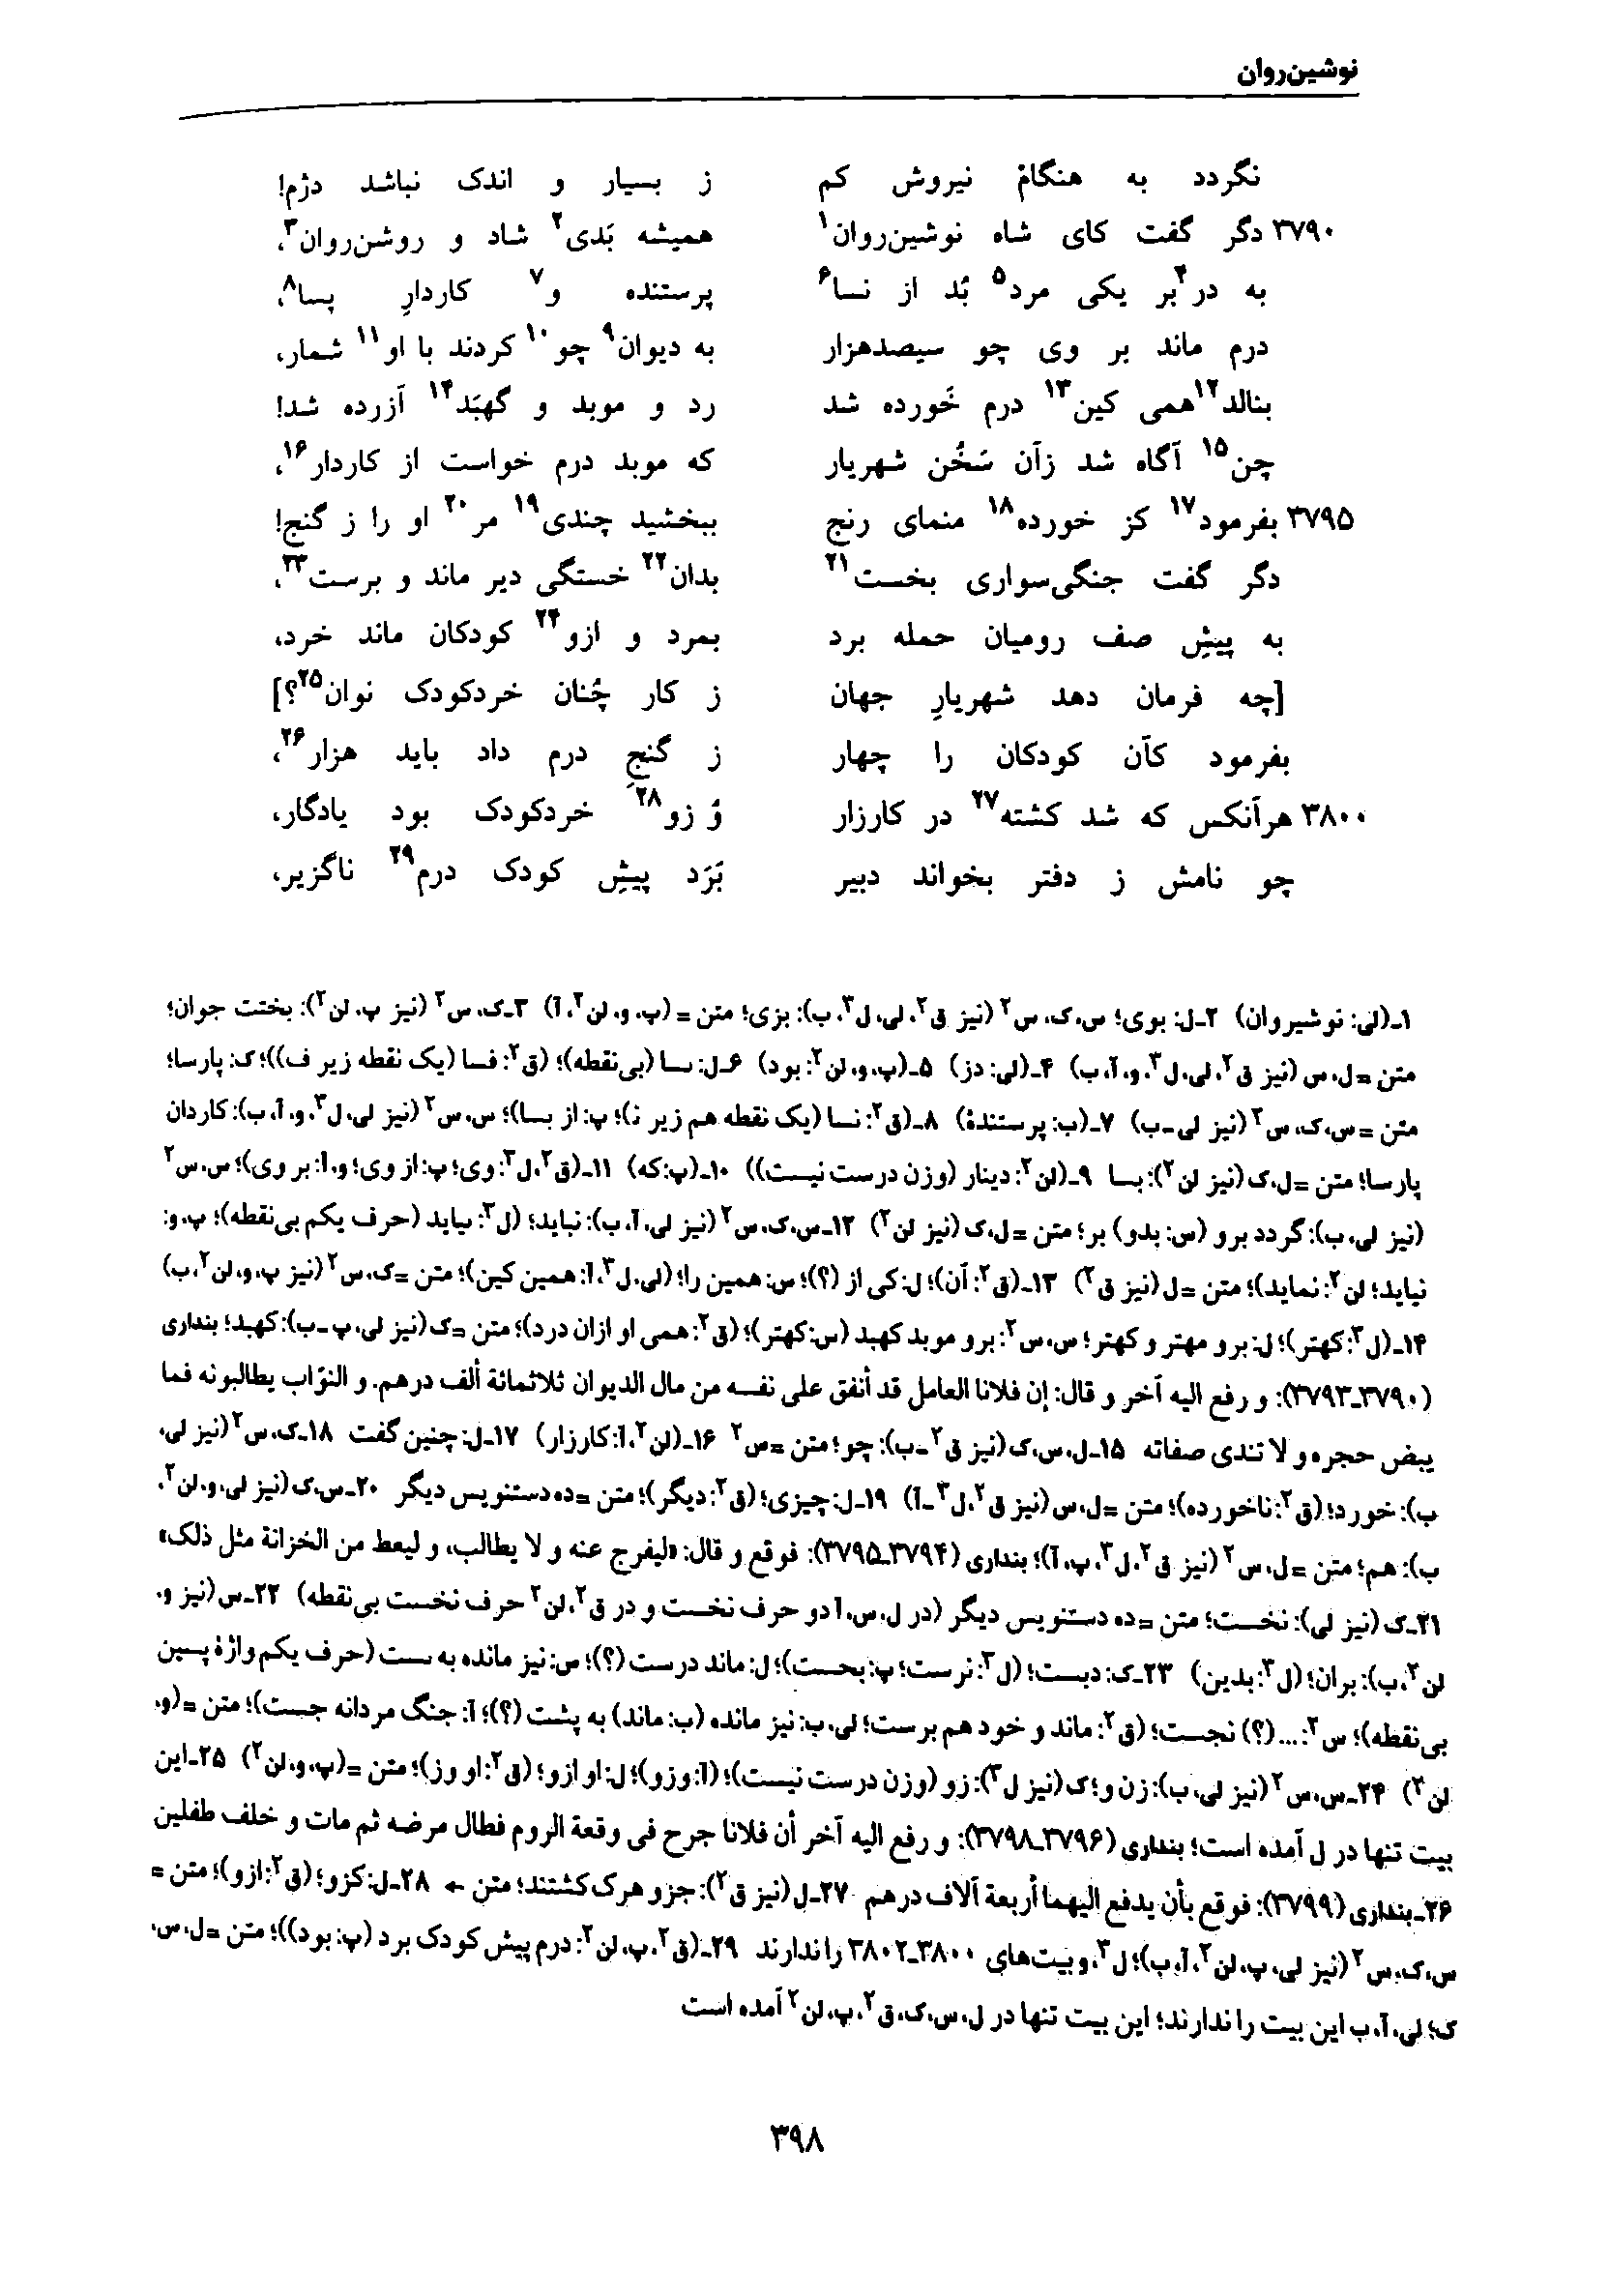 نوشین‌روان
نگردد به هنگام نیروش کم ز بسیار و اندک نباشد دژم!
۳۷۹۰ دگر گفت کای شاه نوشین‌روان۱ همیشه بَدی۲ شاد و روشن‌روان۳،
به در۴بر یکی مرد۵ بُد از نسا۶ پرستنده و۷ کاردارِ پسا۸،
درم ماند بر وی چو سیصدهزار به دیوان۹ چو۱۰ کردند با او۱۱ شمار،
بنالد۱۲همی کین۱۳ درم خَورده شد رد و موبد و گهبَد۱۴ آزرده شد!
چن۱۵ آگاه شد زآن سَخُن شهریار که موبد درم خواست از کاردار۱۶،
۳۷۹۵ بفرمود۱۷ کز خورده۱۸ منمای رنج ببخشید چندی۱۹ مر۲۰ او را ز گنج!
دگر گفت جنگی‌سواری بخست۲۱ بدان۲۲ خستگی دیر ماند و برست۲۳،
به پیشِ صف رومیان حمله برد بمرد و ازو۲۴ کودکان ماند خرد،
[چه فرمان دهد شهریارِ جهان ز کار چُنان خردکودک نوان۲۵؟]
بفرمود کآن کودکان را چهار ز گنجِ درم داد باید هزار۲۶،
۳۸۰۰ هرآنکس که شد کشته۲۷ در کارزار وُ زو۲۸ خردکودک بود یادگار،
چو نامش ز دفتر بخواند دبیر بَرَد پیشِ کودک درم۲۹ ناگزیر،
۱ـ(لی: نوشیروان) ۲ـل: بوی؛ س، ک، س۲ (نیز ق۲، لی، ل۳، ب): بزی؛ متن = (پ، و، لن۲، آ) ۳ـک، س۲ (نیز پ، لن۲): بختت جوان؛
متن =ل، س (نیز ق۲، لی، ل۳، و، آ، ب) ۴ـ(لی: دز) ۵ـ(پ، و، لن۲: بود) ۶ـل: ىسا (بی‌نقطه)؛ (ق۲: فسا (یک نقطه زیر ف))؛ ک: پارسا؛
متن =س، ک، س۲ (نیز لی ـ ب) ۷ـ(ب: پرستندهٔ) ۸ـ(ق۲: نسا (یک نقطه هم زیر ن)؛ پ: از بسا)؛ س، س۲ (نیز لی، ل۳، و، آ، ب): کاردان
پارسا؛ متن =ل، ک (نیز لن۲): بسا ۹ـ(لن۲: دینار (وزن درست نیست)) ۱۰ـ(پ: که) ۱۱ـ(ق۲، ل۳: وی؛ پ: از وی؛ و، آ: بر وی)؛ س، س۲
(نیز لی، ب): گردد برو (س: بدو) بر؛ متن =ل، ک (نیز لن۲) ۱۲ـس، ک، س۲ (نیز لی، آ، ب): نباید؛ (ل۳: ىیاید (حرف یکم بی‌نقطه)؛ پ، و:
نیاید؛ لن۲: نماید)؛ متن =ل (نیز ق۲) ۱۳ـ(ق۲: آن)؛ ل: کی از (؟)؛ س: همین را؛ (لی، ل۳، آ: همین کین)؛ متن =ک، س۲ (نیز پ، و، لن۲، ب)
۱۴ـ(ل۳: کهتر)؛ ل: برو مهتر و کهتر؛ س، س۲: برو موبد کهبد (س: کهتر)؛ (ق۲: همی او ازان درد)؛ متن =ک (نیز لی، پ ـ ب): کهبد؛ بنداری
(۳۷۹۰ـ۳۷۹۳): و رفع الیه آخر و قال: إن فلانا العامل قد أنفق علی نفسه من مال الدیوان ثلاثمائة ألف درهم. و النوّاب یطالبونه فما
یبض حجره و لا تندی صفاته ۱۵ـل، س، ک (نیز ق۲ ـ ب): چو؛ متن =س۲ ۱۶ـ(لن۲، آ: کارزار) ۱۷ـل: چنین گفت ۱۸ـک، س۲ (نیز لی،
ب): خورد؛ (ق۲: ناخورده)؛ متن =ل، س (نیز ق۲، ل۳ ـ آ) ۱۹ـل: چیزی؛ (ق۲: دیگر)؛ متن =ده دستنویس دیگر ۲۰ـس، ک (نیز لی، و، لن۲،
ب): هم؛ متن =ل، س۲ (نیز ق۲، ل۳، پ، آ)؛ بنداری (۳۷۹۴ـ۳۷۹۵): فوقع و قال: «لیفرج عنه و لا یطالب، و لیعط من الخزانة مثل ذلک»
۲۱ـک (نیز لی): نخست؛ متن =ده دستنویس دیگر (در ل، س، آ دو حرف نخست و در ق۲، لن۲ حرف نخست بی‌نقطه) ۲۲ـس (نیز و،
لن۲، ب): بران؛ (ل۳: بدین) ۲۳ـک: دبست؛ (ل۳: نرست؛ پ: بحست)؛ ل: ماند درست (؟)؛ س: نیز مانده به ىست (حرف یکم واژهٔ پسین
بی‌نقطه)؛ س۲: ...(؟) نجست؛ (ق۲: ماند و خود هم برست؛ لی، ب: نیز مانده (ب: ماند) به پشت (؟)؛ آ: جنگ مردانه جست)؛ متن =(و،
لن۲) ۲۴ـس، س۲ (نیز لی، ب): زن و؛ ک (نیز ل۳): زو (وزن درست نیست)؛ (آ: وزو)؛ ل: او ازو؛ (ق۲: او وز)؛ متن =(پ، و، لن۲) ۲۵ـاین
بیت تنها در ل آمده است؛ بنداری (۳۷۹۶ـ۳۷۹۸): و رفع الیه آخر أن فلانا جرح فی وقعة الروم فطال مرضه ثم مات و خلف طفلین
۲۶ـبنداری (۳۷۹۹): فوقع بأن یدفع الیهما أربعة آلاف درهم ۲۷ـل (نیز ق۲): جزو هرک کشتند؛ متن ← ۲۸ـل: کزو؛ (ق۲: ازو)؛ متن =
س، ک، س۲ (نیز لی، پ، لن۲، آ، ب)؛ ل۳، و بیت‌های ۳۸۰۰ـ۳۸۰۲ را ندارند ۲۹ـ(ق۲، پ، لن۲: درم پیش کودک برد (پ: بود))؛ متن =ل، س،
ک؛ لی، آ، ب این بیت را ندارند؛ این بیت تنها در ل، س، ک، ق۲، پ، لن۲ آمده است
۳۹۸